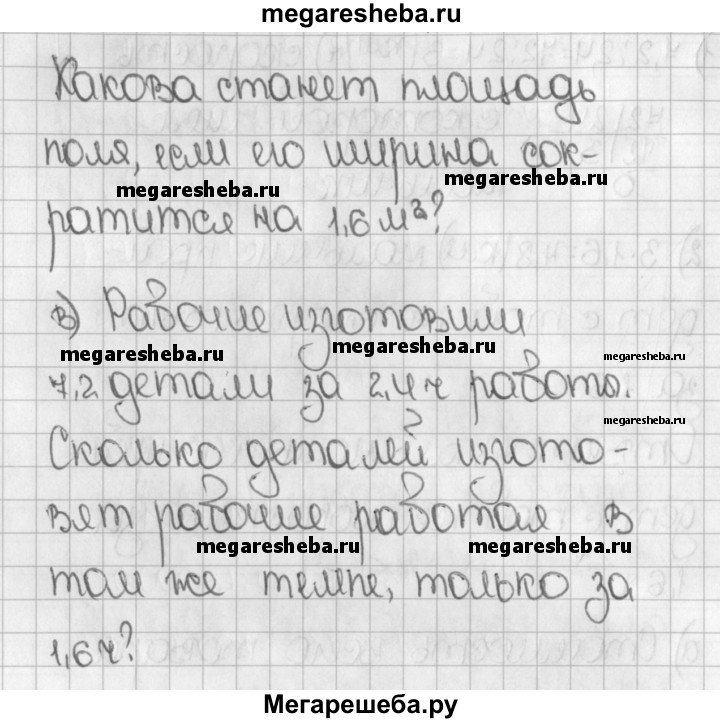 megaresheba.ru
Какова станет площадь
поля, если его ширина сок-
megaresheba.ru
megaresheba.ru
ратится на 1,6 м²?
в) Рабочие изготовили
megaresheba.ru
megaresheba.ru
megaresheba.ru
7,2 детали за 2,4 ч работы.
megaresheba.ru
Сколько деталей изгото-
вят рабочие работая в
megaresheba.ru
megaresheba.ru
том же темпе, только за
1,6 ч?
Мегарешеба.ру